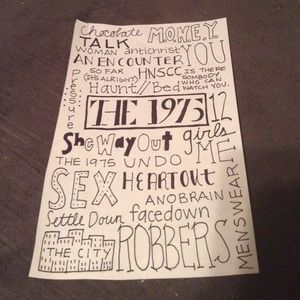 Chocolate M.O.N.E.Y.
TALK YOU
WOMAN antichrist
AN ENCOUNTER
SO FAR HNSCC IS THERE
(IT'S ALRIGHT) SOMBODY
Haunt//Bed WHO CAN
WATCH YOU.
Pressure
THE 1975 12
She Way Out girls
THE 1975 UNDO ME
SEX HEARTOUT
ANOBRAIN
Settle Down facedown
THE CITY ROBBERS
MENSWEAR